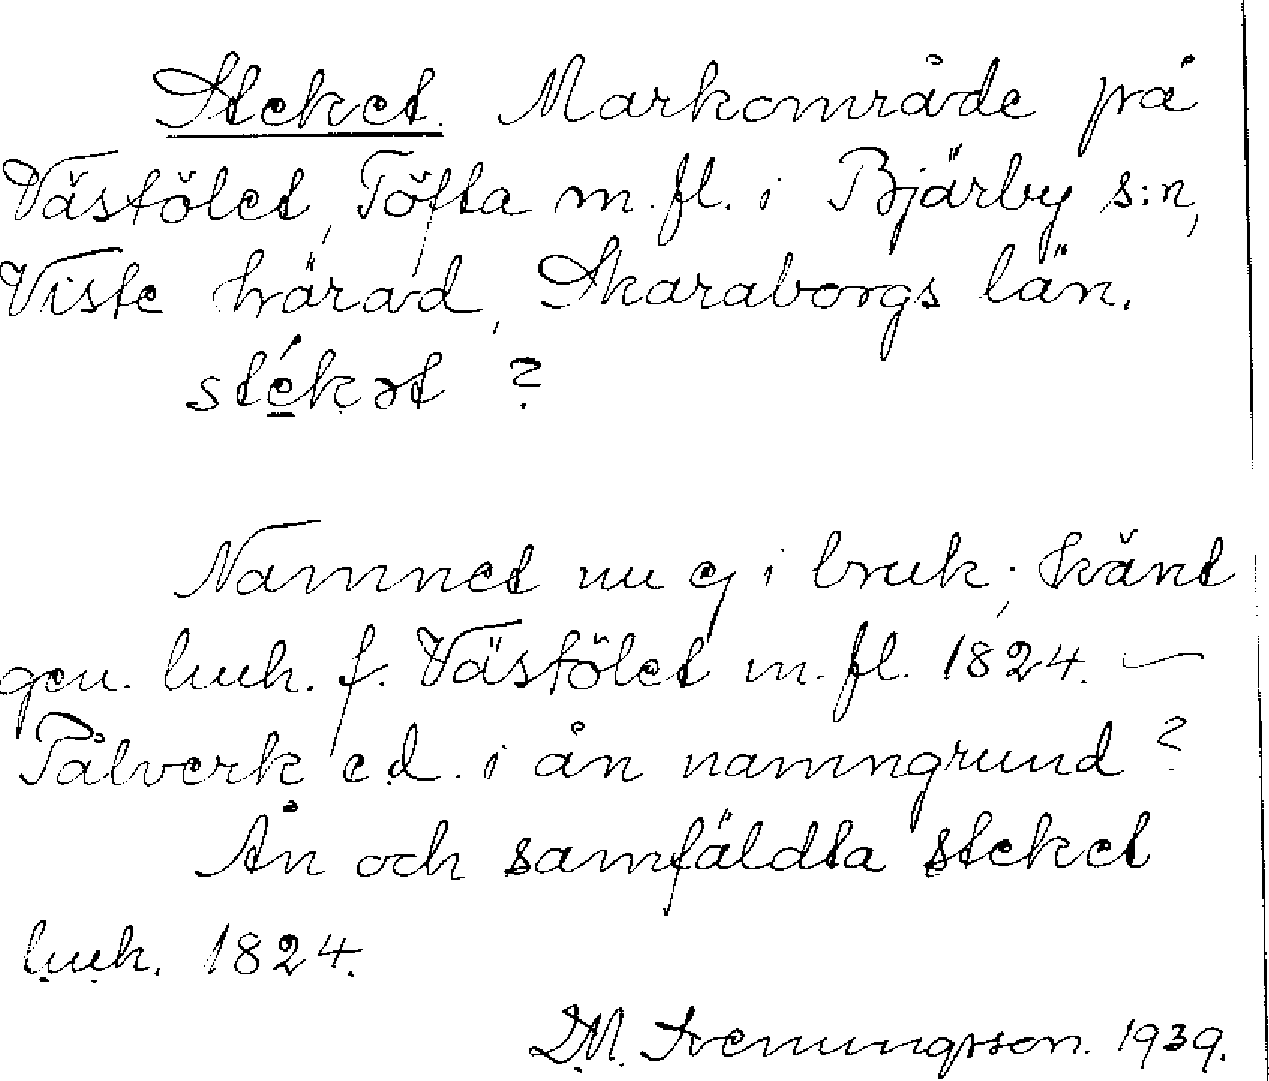 Steket. Markområde på
Västölet, Töfta m.fl. i Bjärby s:n,
Viste härad, Skaraborgs län.
stékət ?
Namnet nu ej i bruk; känt
gen. luk. f. Västölet m.fl. 1824. —
Pålverk e.d. i ån namngrund ?
Ån och samfäldta steket
luk. 1824.
D.M. Svenungsson. 1939.